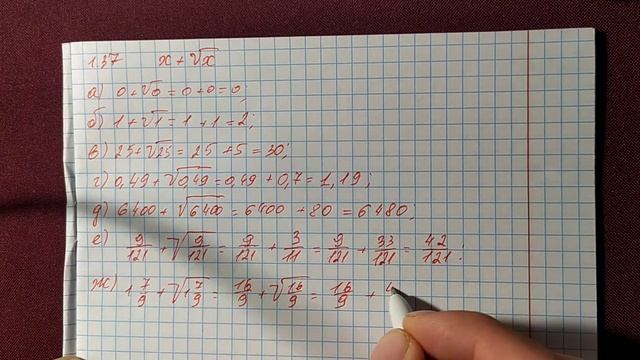 1.37 x + √x
а) 0 + √0 = 0 + 0 = 0;
б) 1 + √1 = 1 + 1 = 2;
в) 25 + √25 = 25 + 5 = 30;
г) 0,49 + √0,49 = 0,49 + 0,7 = 1,19;
д) 6400 + √6400 = 6400 + 80 = 6480;
е) 9/121 + √9/121 = 9/121 + 3/11 = 9/121 + 33/121 = 42/121;
ж) 1 7/9 + √1 7/9 = 16/9 + √16/9 = 16/9 + 4